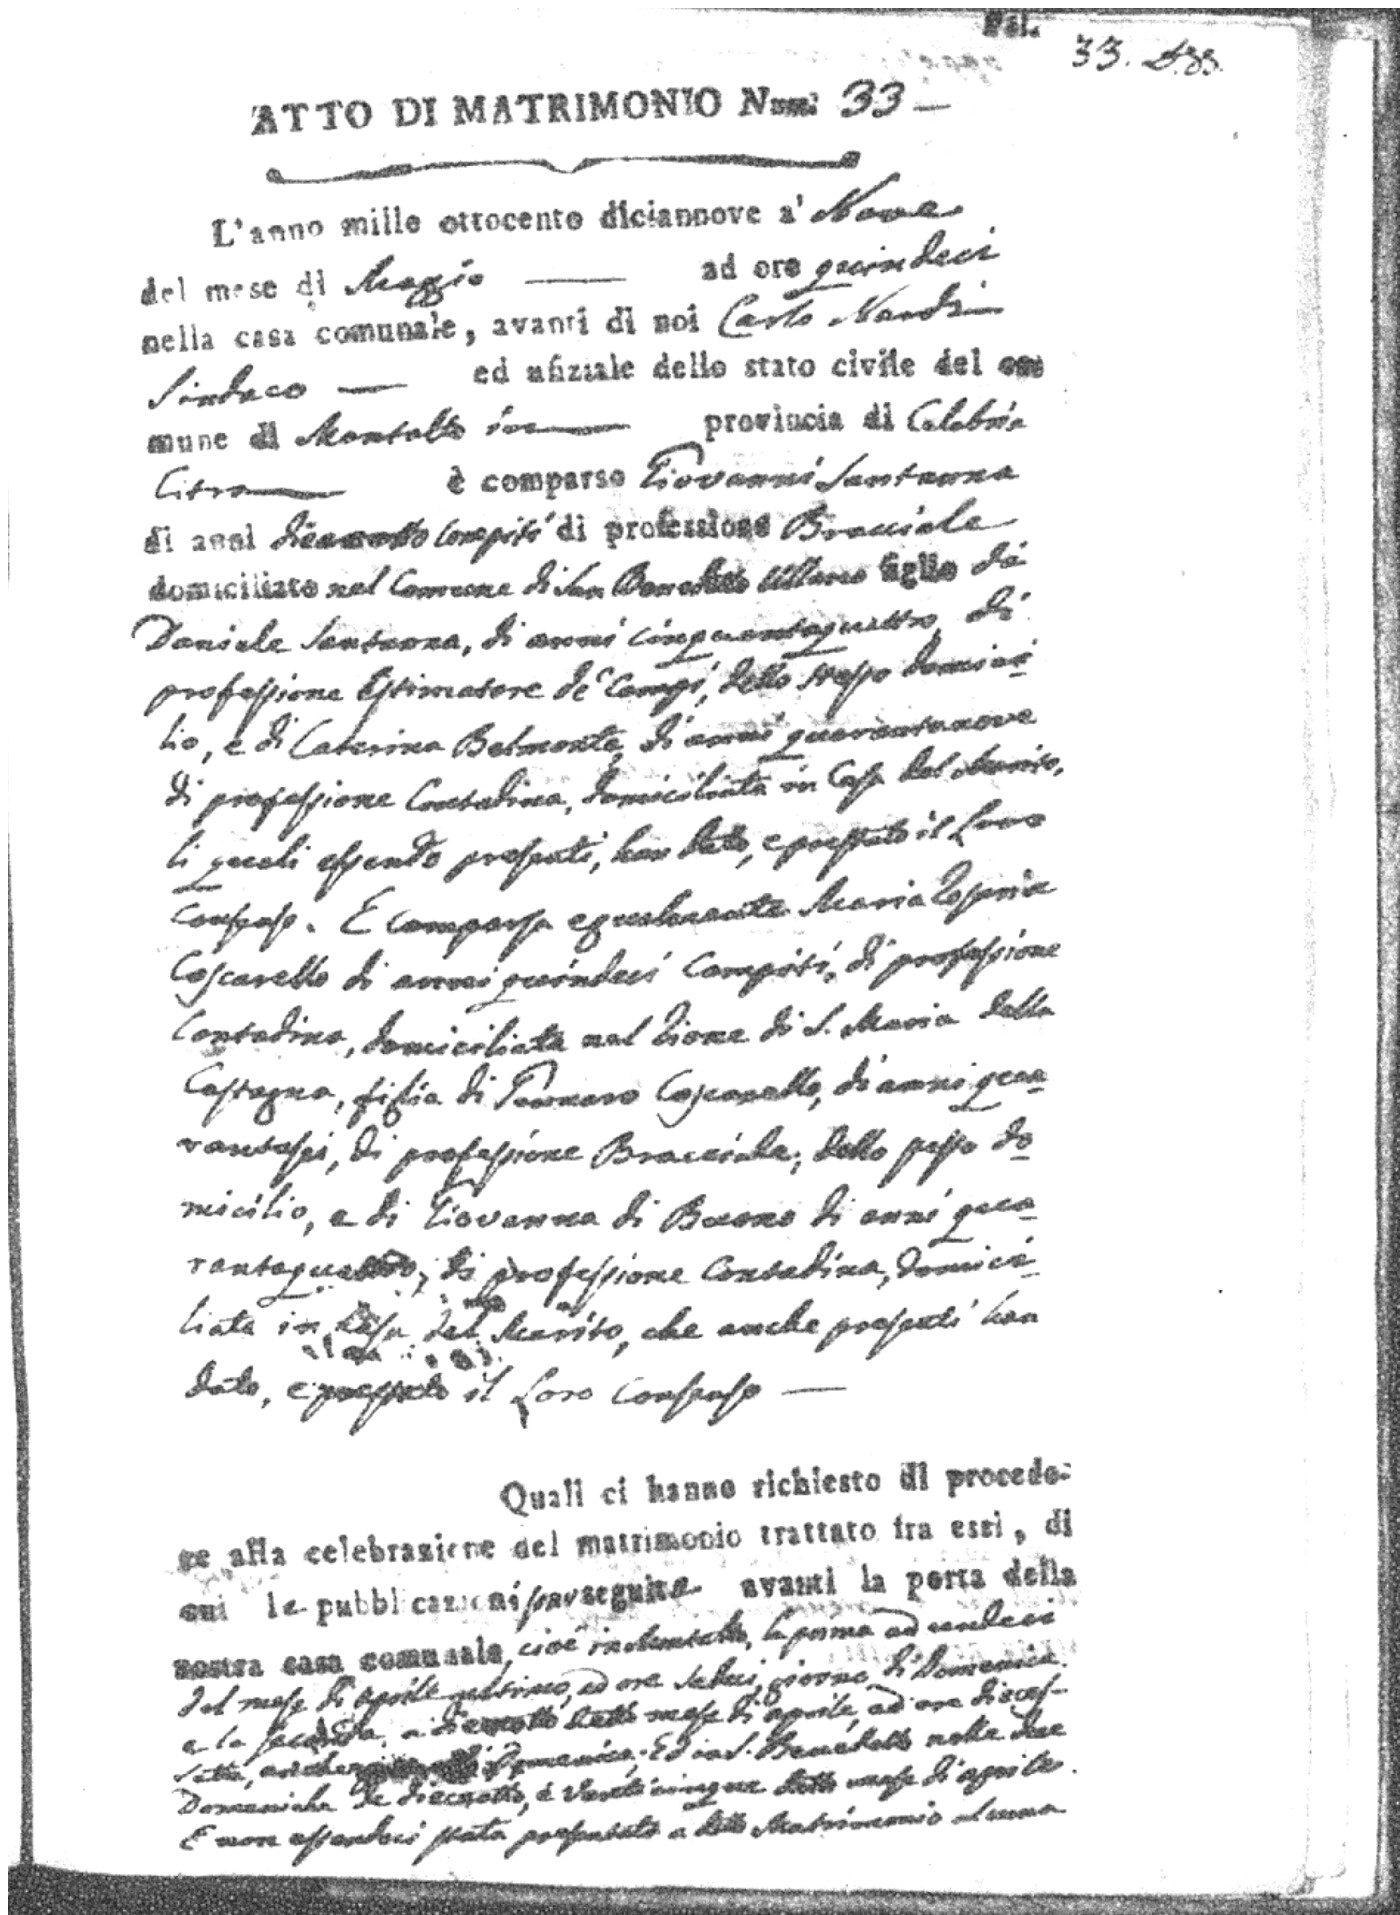 Fol.
33. D.33.
ATTO DI MATRIMONIO Num. 33 —
L'anno mille ottocento diciannove a' Nove
del mese di Maggio — ad ore quindeci
nella casa comunale, avanti di noi Carlo Nardi
Sindaco — ed ufiziale dello stato civile del co
mune di Montalto — provincia di Calabria
Citra — è comparso Giovanni Santanna
di anni diecenotto compiti di professione Bracciale
domiciliato nel Comune di San Benedetto Ullano figlio di
Daniele Santanna, di anni cinquantaquattro, di
professione Estimatore de' Campi, dello stesso domici-
lio, e di Caterina Belmonte, di anni quarantanove
di professione Contadina, domiciliata in Casa del Marito,
li quali essendo presenti, han dato, e prestato il Loro
Consenso. E comparsa egualmente Maria Rosaria
Coscarello di anni quindeci compiti, di professione
Contadina, domiciliata nel Rione di S. Maria della
Castagna, figlia di Gennaro Coscarello, di anni qua-
rantasei, di professione Bracciale, dello stesso do-
micilio, e di Giovanna di Buono di anni qua-
rantaquattro, di professione Contadina, domici-
liata in Casa del Marito, che anche presenti han
dato, e prestato il Loro Consenso —
Quali ci hanno richiesto di procede-
re alla celebrazione del matrimonio trattato fra essi, di
cui le pubblicazioni son seguite avanti la porta della
nostra casa comunale, cioè in Montalto, la prima ad undeci
del mese di aprile ultimo, ad ore sedeci, giorno di Domenica
e la seconda, a diecenotto detto mese di aprile, ad ore dieces-
sette, anche Domenica; Ed in S. Benedetto nelle due
Domeniche de' diecenotto, e venticinque detto mese di aprile.
E non essendoci stata presentata a detto Matrimonio alcuna